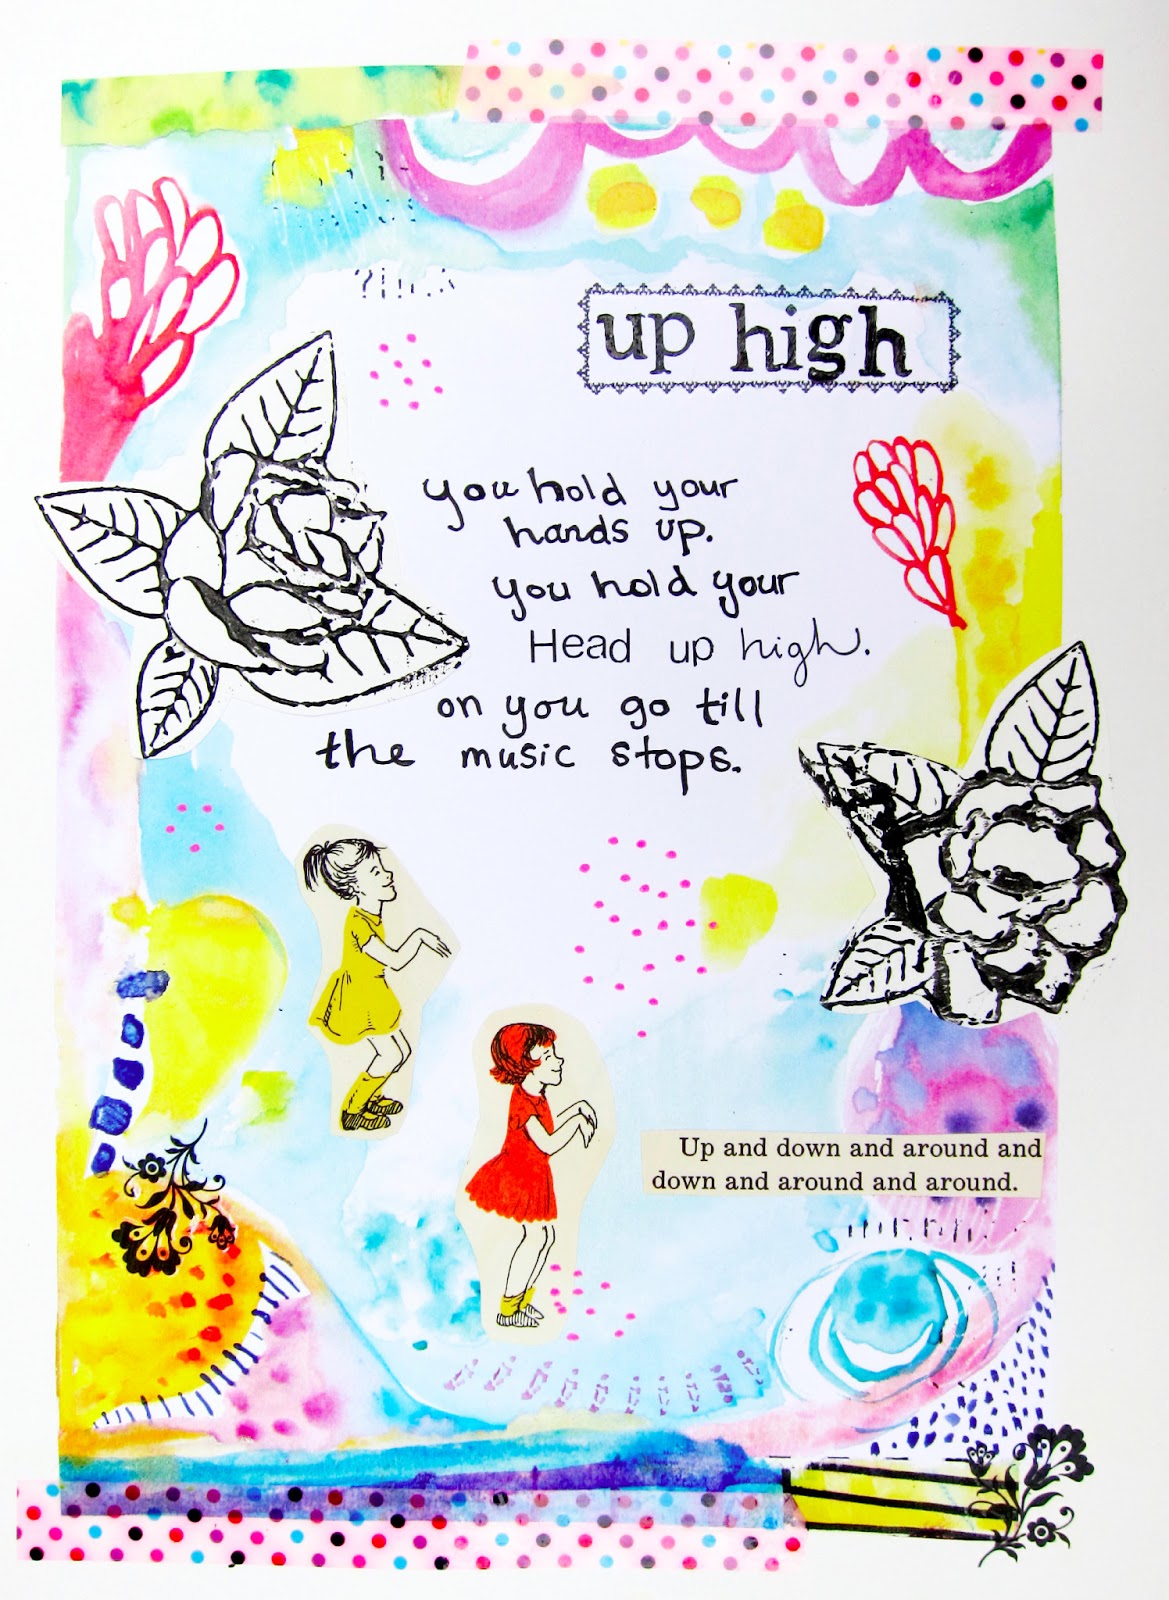 up high
you hold your
hands up.
you hold your
Head up high.
on you go till
the music stops.
Up and down and around and
down and around and around.